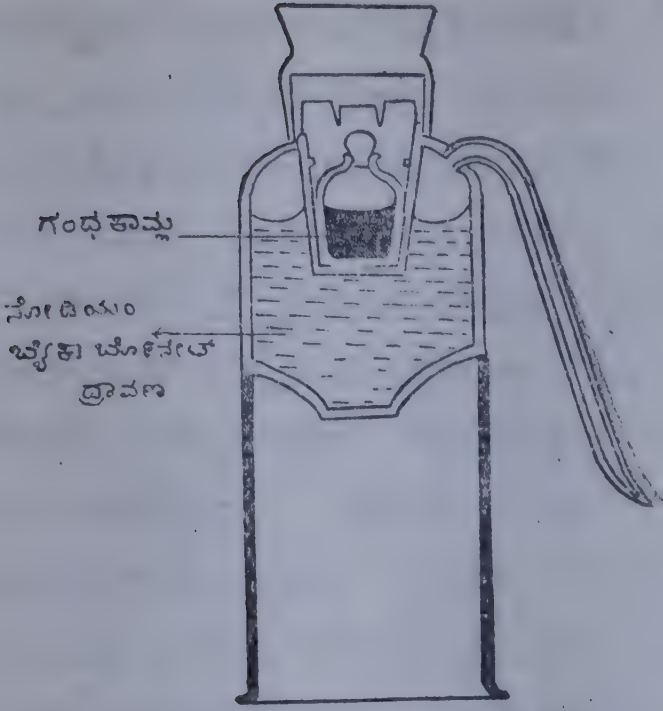 ಗಂಧಕಾಮ್ಲ
ಸೋಡಿಯಂ
ಬೈಕಾರ್ಬೋನೇಟ್
ದ್ರಾವಣ